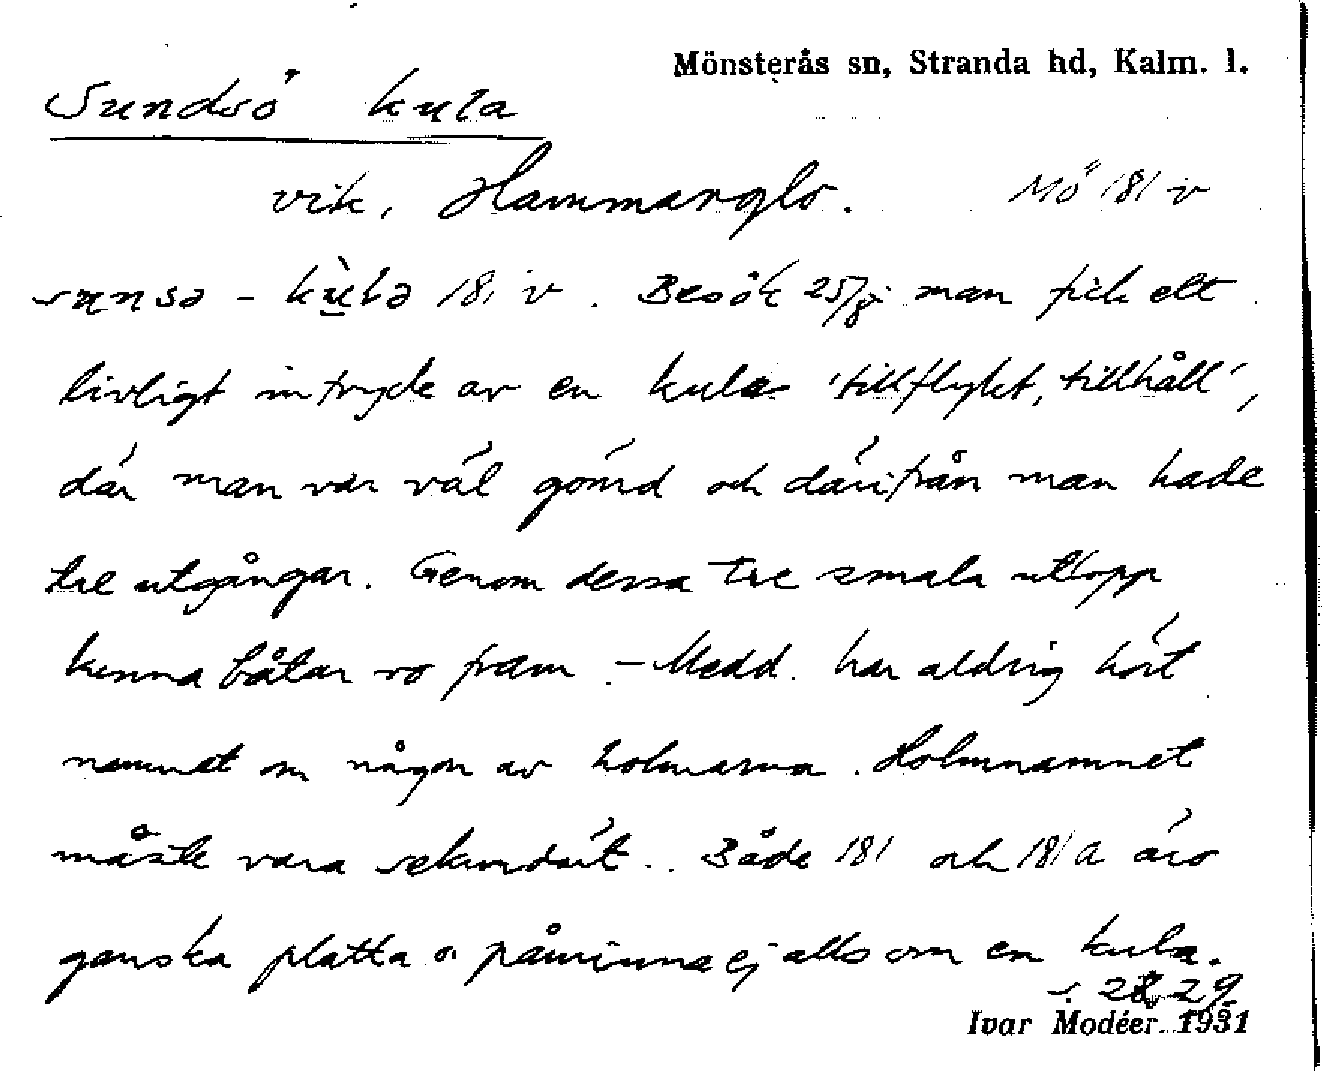 Mönsterås sn, Stranda hd, Kalm. l.
Sundsö kula
vik, Hammarglo. Mö 181 v
sunsə - kùlə 181 v. Besök 25/8: man fick ett
livligt intryck av en kula 'tillflykt, tillhåll',
där man var väl gömd och därifrån man hade
tre utgångar. Genom dessa tre smala utlopp
kunna båtar ro fram. - Medd. har aldrig hört
namnet om någon av holmarna. Holmnamnet
måste vara sekundärt. Både 181 och 181a äro
ganska platta o. påminna ej alls om en kula.
s. 28, 29
Ivar Modéer. 1931